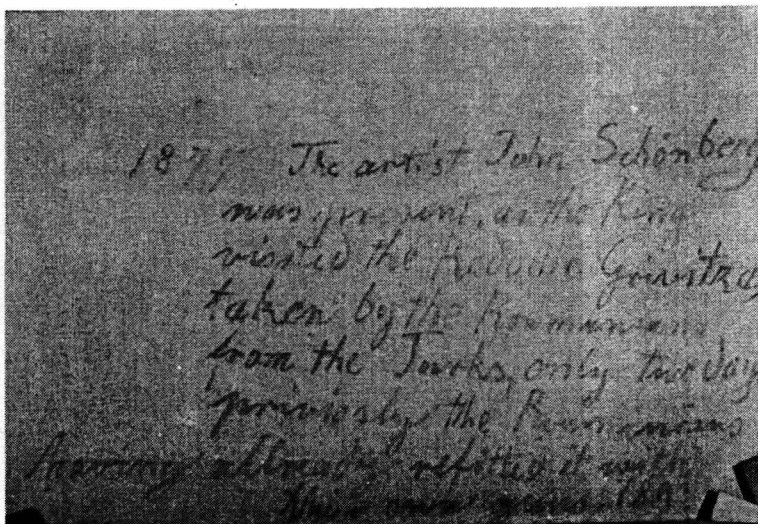 1877 The artist John Schönberg
was present, as the King
visited the Redoute Grivitza,
taken by the Roumanians
from the Turks, only two day
priviosly the Roumanians
having allready refitted it with
their own